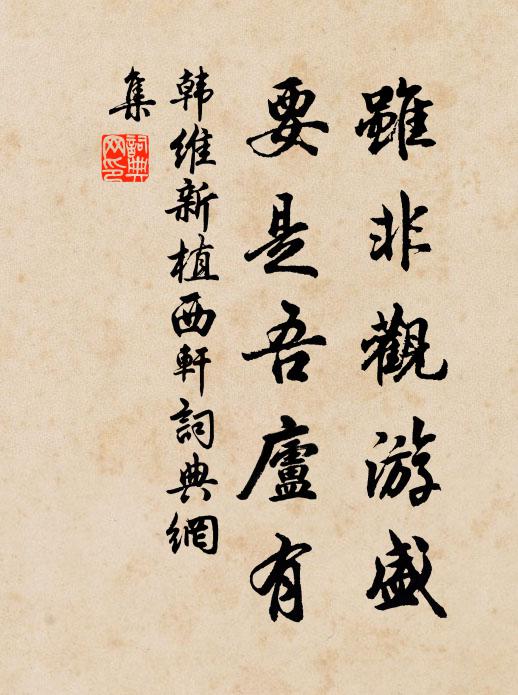 雖非觀游盛
要是吾廬有
韩维新植西軒詞典網
集
詞典
网印